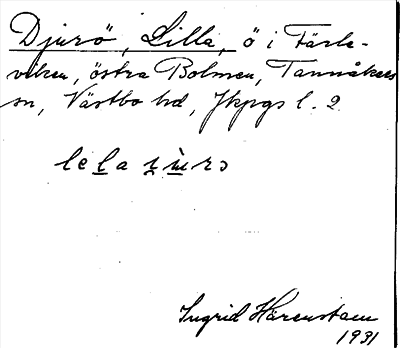 Djurö, Lilla, ö i Färle-
viken, östra Bolmen, Tannåkers
sn, Västbo hd, Jkpgs l. 2
lela
Ingrid Härenstam
1931